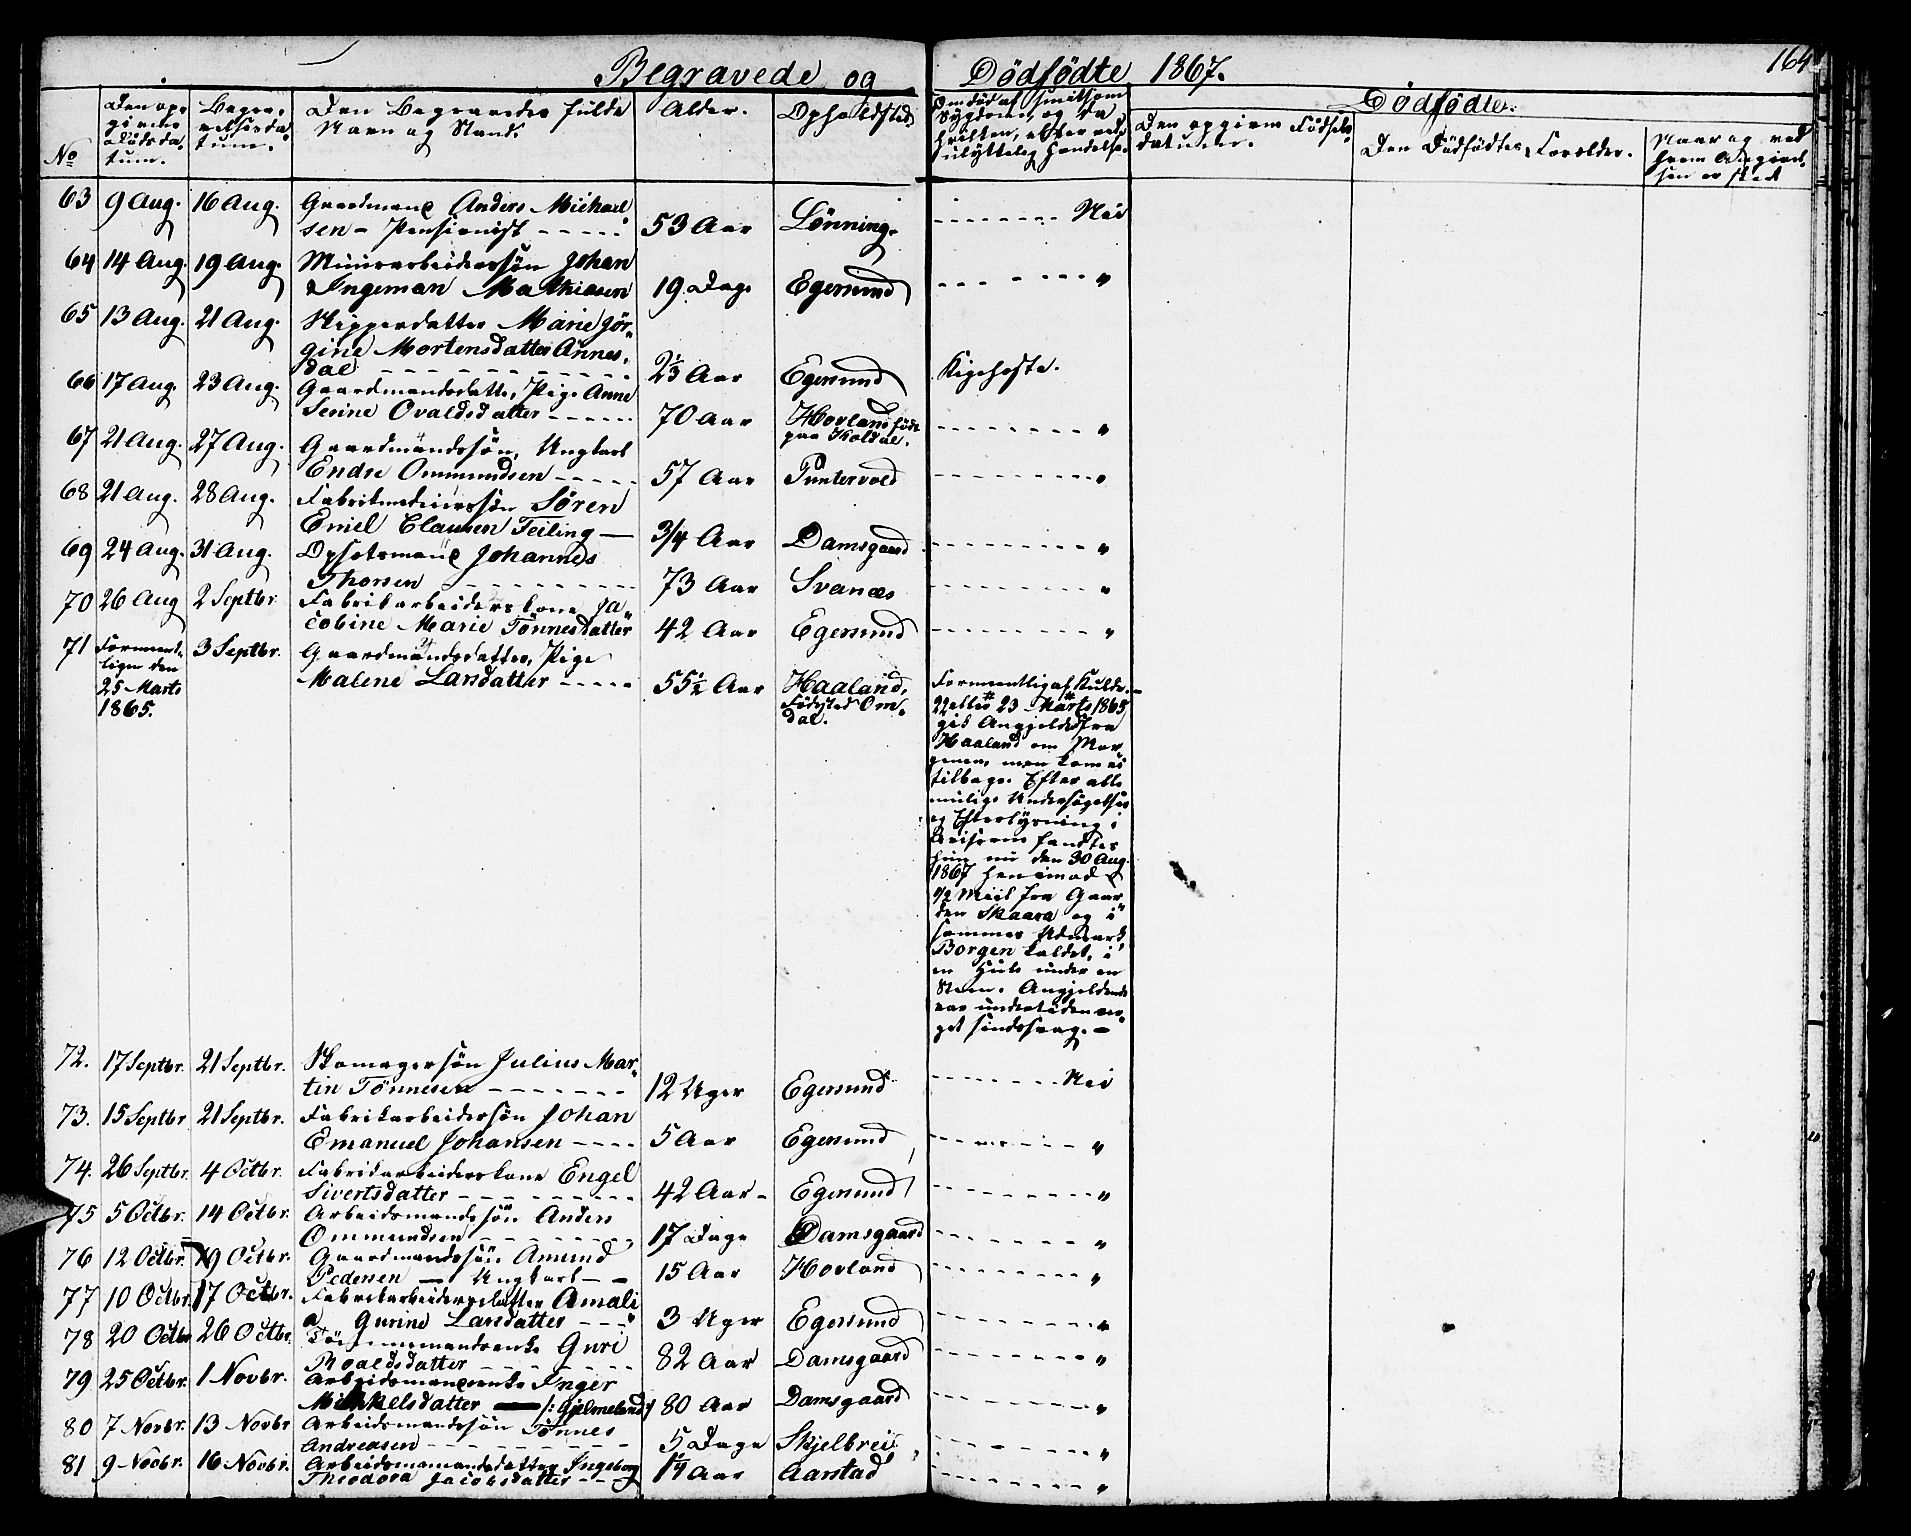 Begravede og Dödfödte 1867.
164
No
Den op-
givne
Dödsda-
tum.
Begra-
velsesda-
tum.
Den Begravedes fulde
Navn og Stand.
Alder.
Opholdsted.
Om död af smitsom
Sygdom, og da
hvilken, eller ved
ulykkelig Hændelse.
Dödfödte.
Den opgivne Födsels-
datum.
Den Dödfödtes Forældre.
Naar og ved
hvem Angivel-
sen er skeet
63 9 Aug. 16 Aug. Gaardmand Anders Michael-
sen - Pensionist - - - - - 53 Aar Lönning. - - - - - - - Nei
64 14 Aug. 19 Aug. Muurarbeidersön Johan
Ingeman Mathiasen 19 Dage Egersund - - - - - - - "
65 13 Aug. 21 Aug. Skipperdatter Marie Jör-
gine Mortensdatter Annes-
dal - - - - - 2 1/3 Aar Egersund Kighoste.
66 17 Aug. 23 Aug. Gaardmandsdatter, Pige Anne
Serine Ovaldsdatter - - - - - 70 Aar Hovland, född
paa Koldal. - - - - - - - "
67 21 Aug. 27 Aug. Gaardmandssön, Ungkarl
Endre Ommundsen - - - - - 57 Aar Puntervold - - - - - - - "
68 21 Aug. 28 Aug. Fabrikmedeiersön Sören
Emiel Clausen Feiling - 3/4 Aar Damsgaard - - - - - - - "
69 24 Aug. 31 Aug. Opsatsmand Johannes
Thorsen - - - - - 73 Aar Svanæs - - - - - - - "
70 26 Aug 2 Septbr. Fabrikarbeiderskone Ja-
cobine Marie Tönnesdatter 42 Aar Egersund - - - - - - - "
71 Forment-
ligen den
25 Marts
1865. 3 Septbr. Gaardmandsdatter, Pige
Malene Larsdatter - - - - - 55 1/2 Aar Haaland,
Födested Om-
dal.
Formentlig af Kulde. -
22 eller 23 Marts 1865
gik Angjeldede fra
Haaland om Mor-
genen, men kom ei
tilbage. Efter alle
mulige Undersögelser
og Efterlysning i
Aviserne fandtes
hun nu den 30 Aug.
1867 henimod
1/2 Miil fra Gaar-
den Skaara og i
sammes Udmark,
Borgen kaldet, i
en Hule under en
Steen. Angjeldende
var undertiden no-
get sindssvag. -
72. 17 Septbr. 21 Septbr. Skomagersön Julius Mar-
tin Tönnesen - - - - - 12 Uger Egersund - - - - - - - Nei
73. 15 Septbr 21 Septbr. Fabrikarbeidersön Johan
Emanuel Johansen - - - - 5 Aar Egersund - - - - - - - "
74. 26 Septbr. 4 Octbr. Fabrikarbeiderskone Engel
Sivertsdatter - - - - - 42 Aar - Egersund - - - - - - - "
75 5 Octbr. 14 Octbr. Arbeidsmandssön Anders
Ommundsen - - - - - 17 Dage Damsgaard - - - - - - - "
76 12 Octbr. 19 Octbr. Gaardmandssön Amund
Pedersen - Ungkarl - - 15 Aar Hovland - - - - - - - "
77 10 Octbr. 17 Octbr. Fabrikarbeidersdatter Amali-
a Gurine Larsdatter - - - 3 Uger Egersund - - - - - - - "
78 20 Octbr 26 Octbr. Guri
Roaldsdatter - - - - - 82 Aar Damsgaard - - - - - - - "
79 25 Octbr. 1 Novbr. Arbeidsmandenke Inger
Mikkelsdatter /: Gjelmeland :/ 80 Aar Damsgaard - - - - - - - "
80 7 Novbr. 13 Novbr Arbeidsmandssön Tönnes
Andreasen - - - - - 5 Dage Skjelbrei - - - - - - - "
81 9 Novbr. 16 Novbr. Arbeidsmandsdatter Ingeborg
Theodora Jacobsdatter - - - 1 1/4 Aar Aarstad - - - - - - - "